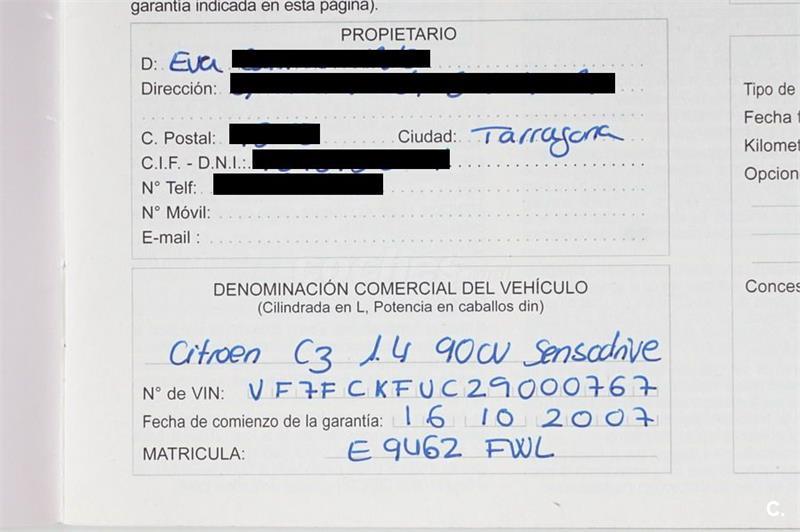 garantía indicada en esta página).
PROPIETARIO
D: Eva
Dirección:
C. Postal: Ciudad: Tarragona
C.I.F. - D.N.I.:
N° Telf:
N° Móvil:
E-mail :
DENOMINACIÓN COMERCIAL DEL VEHÍCULO
(Cilindrada en L, Potencia en caballos din)
Citroen C3 1.4 90CV Sensodrive
N° de VIN: VF7FCKFUC29000767
Fecha de comienzo de la garantía: 16 10 2007
MATRICULA: E 9462 FWL
Tipo de
Fecha
Kilomet
Opcion
Conces
C.